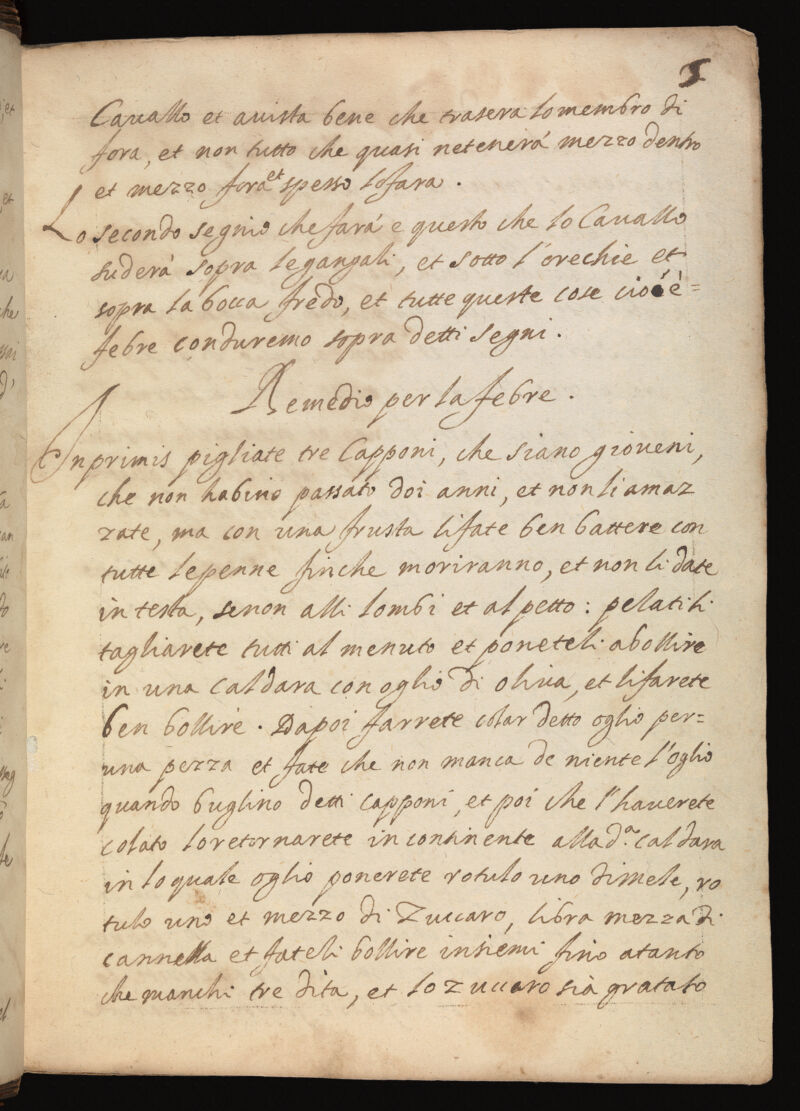 5
Cauallo et auista bene che trasera lo membro di
fora, et non tutto che quasi netenerá mezzo dentro
et mezzo fora et spesso lo fara.
Lo secondo segnio che fará e questo che lo Cauallo
suderá sopra le gangali, et sotto l'orechie et
sopra la bocca fredo, et tutte queste cose cioé é=
febre conduremo sopra detti segni.
Remedio per la febre.
Inprimis pigliate tre Capponi, che siano gioueni,
che non habino passato doi anni, et non li amaz
zate, ma con una frusta li fate ben battere con
tutte le penne finche moriranno, et non li date
in testa, se non alli lombi et al petto: pelatili
tagliarete tutti al menuto et poneteli a bollire
in una Caldara con oglio di oliua, et li farete
ben bollire. Dapoi farrete colar detto oglio per=
una pezza et fate che non manca de niente l'oglio
quando buglino detti capponi, et poi che l'hauerete
colato lo retornarete incontinente alla d.ª caldara
in lo quale oglio ponerete rotulo uno di mele, ro
tulo uno et mezzo di Zuccaro, libra mezza di
cannella et fateli bollire insiemi fino atanto
che manchi tre dita, et lo zuccaro sia gratato